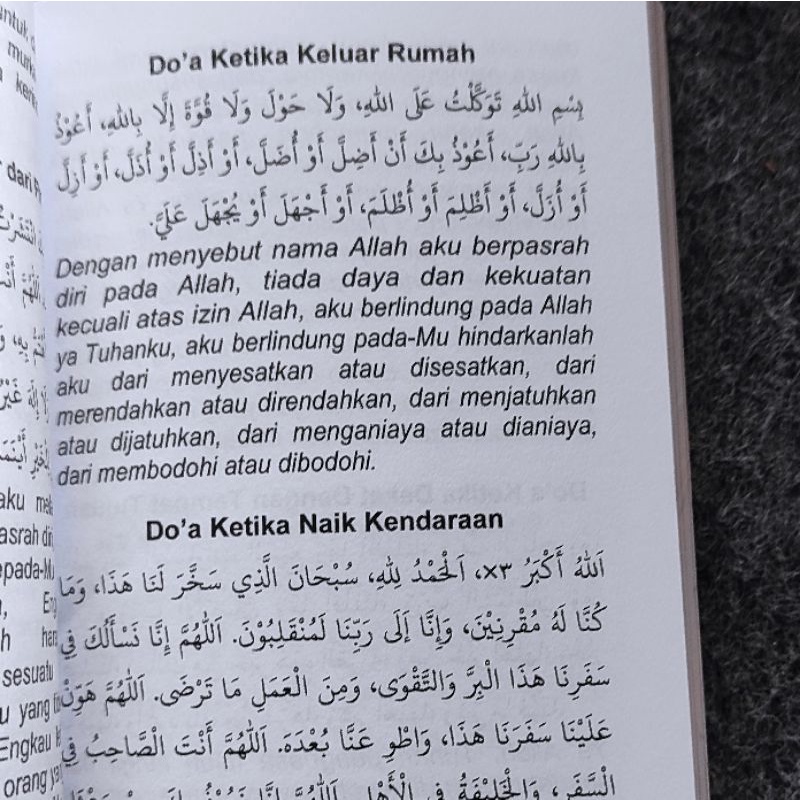 Do'a Ketika Keluar Rumah
بِسْمِ اللهِ تَوَكَّلْتُ عَلَى اللهِ، وَلَا حَوْلَ وَلَا قُوَّةَ إِلَّا بِاللهِ، أَعُوْذُ
بِاللهِ رَبِّ، أَعُوْذُ بِكَ أَنْ أَضِلَّ أَوْ أُضَلَّ، أَوْ أَذِلَّ أَوْ أُذَلَّ، أَوْ أَزِلَّ
أَوْ أُزَلَّ، أَوْ أَظْلِمَ أَوْ أُظْلَمَ، أَوْ أَجْهَلَ أَوْ يُجْهَلَ عَلَيَّ.
Dengan menyebut nama Allah aku berpasrah
diri pada Allah, tiada daya dan kekuatan
kecuali atas izin Allah, aku berlindung pada Allah
ya Tuhanku, aku berlindung pada-Mu hindarkanlah
aku dari menyesatkan atau disesatkan, dari
merendahkan atau direndahkan, dari menjatuhkan
atau dijatuhkan, dari menganiaya atau dianiaya,
dari membodohi atau dibodohi.
Do'a Ketika Naik Kendaraan
اَللهُ أَكْبَرُ ×٣، اَلْحَمْدُ لِلهِ، سُبْحَانَ الَّذِي سَخَّرَ لَنَا هَذَا، وَمَا
كُنَّا لَهُ مُقْرِنِيْنَ، وَإِنَّا إِلَى رَبِّنَا لَمُنْقَلِبُوْنَ. اَللّٰهُمَّ إِنَّا نَسْأَلُكَ فِي
سَفَرِنَا هَذَا الْبِرَّ وَالتَّقْوَى، وَمِنَ الْعَمَلِ مَا تَرْضَى. اَللّٰهُمَّ هَوِّنْ
عَلَيْنَا سَفَرَنَا هَذَا، وَاطْوِ عَنَّا بُعْدَهُ. اَللّٰهُمَّ أَنْتَ الصَّاحِبُ فِي
السَّفَرِ، وَالْخَلِيْفَةُ فِي الْأَهْلِ